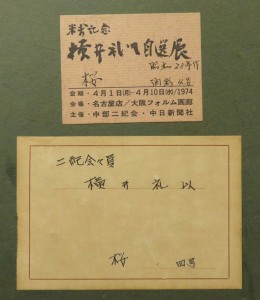 米寿記念
横井礼以自選展
昭和23年作
桜 油彩 4号
会期・4月1日(月)—4月10日(水)/1974
会場・名古屋店/大阪フォルム画廊
主催・中部二紀会・中日新聞社
二紀会々員
横井礼以
桜 四号